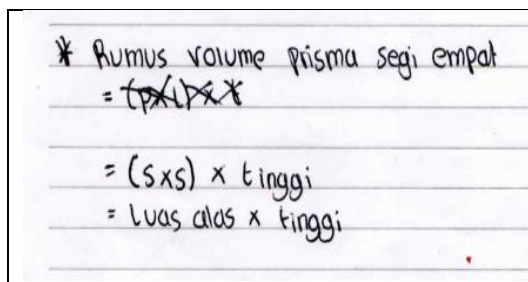 * Rumus volume prisma segi empat
= (p×l) × t
= (s×s) × tinggi
= luas alas × tinggi